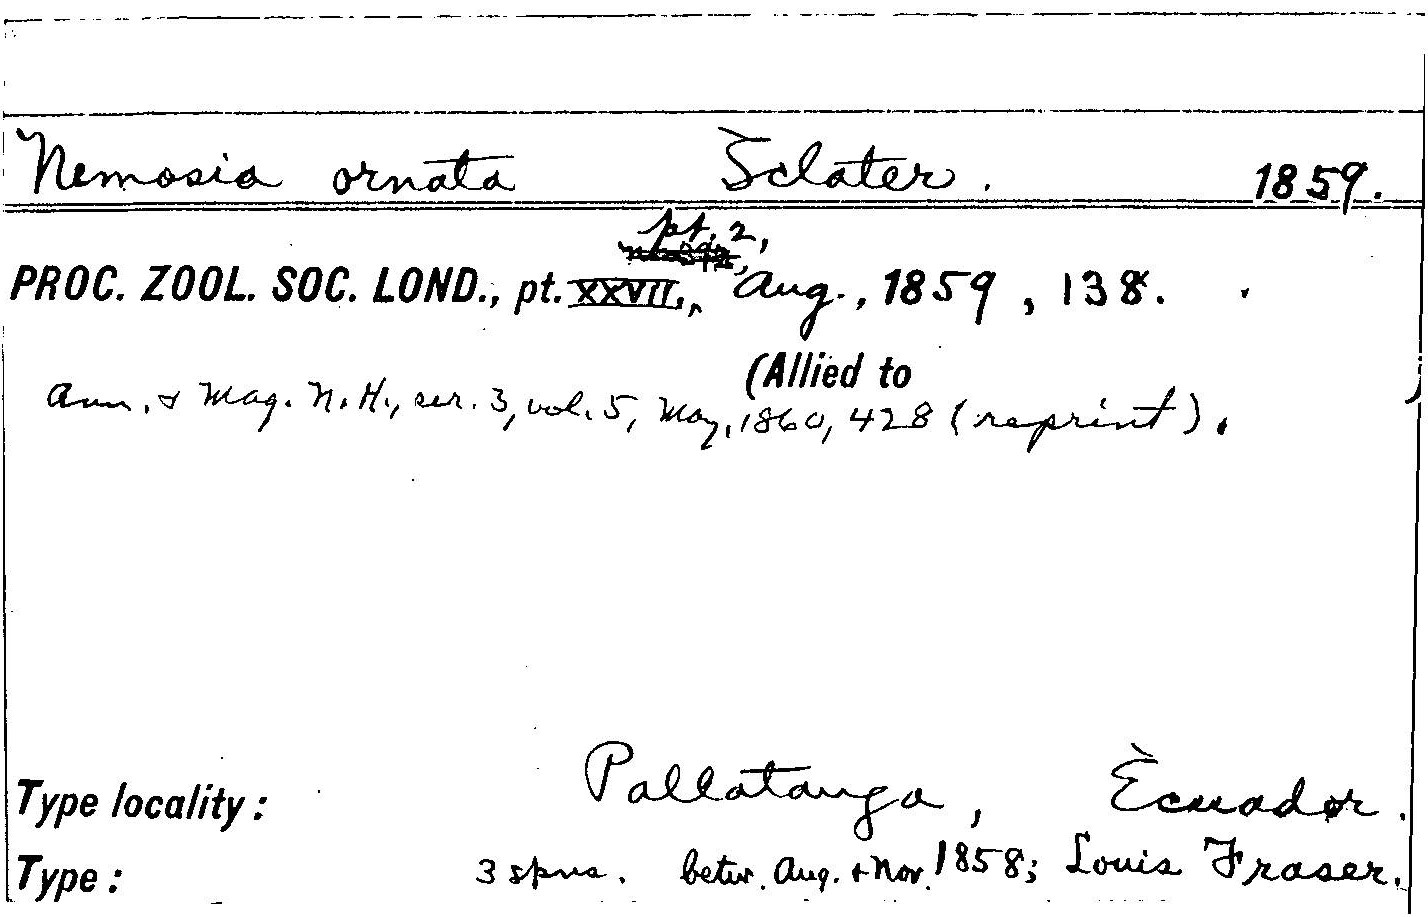 Nemosia ornata Sclater. 1859.
pt. 2,
PROC. ZOOL. SOC. LOND., pt. XXVII., Aug., 1859, 138.
(Allied to )
Ann. & Mag. N. H., ser. 3, vol. 5, May, 1860, 428 (reprint).
Type locality: Pallatanga, Ecuador.
Type: 3 spns. betw. Aug. & Nov. 1858; Louis Fraser.